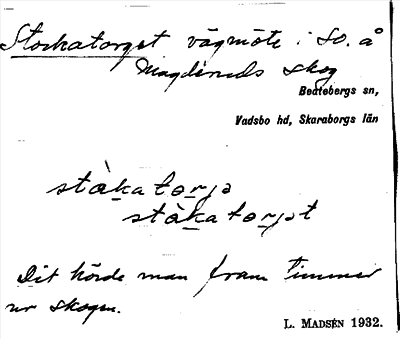 Stockatorget vägmöte i SO. å
Magdeneds skog
Beatebergs sn,
Vadsbo hd, Skaraborgs län
stàkatorjə
stàkatorjət
Dit körde man fram timmer
ur skogen.
L. MADSÉN 1932.